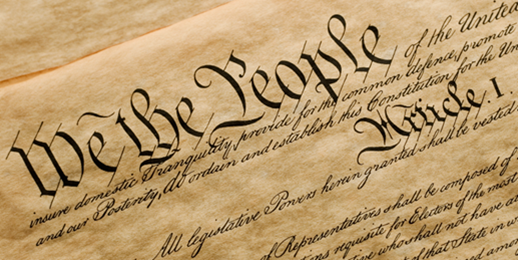 We the People of the United
insure domestic Tranquility, provide for the common defence, promote
and our Posterity, do ordain and establish this Constitution for the Un
Article. I.
All legislative Powers herein granted shall be vested
of Representatives shall be composed of
tions requisite for Electors of the most
who shall not have a
of that State in w